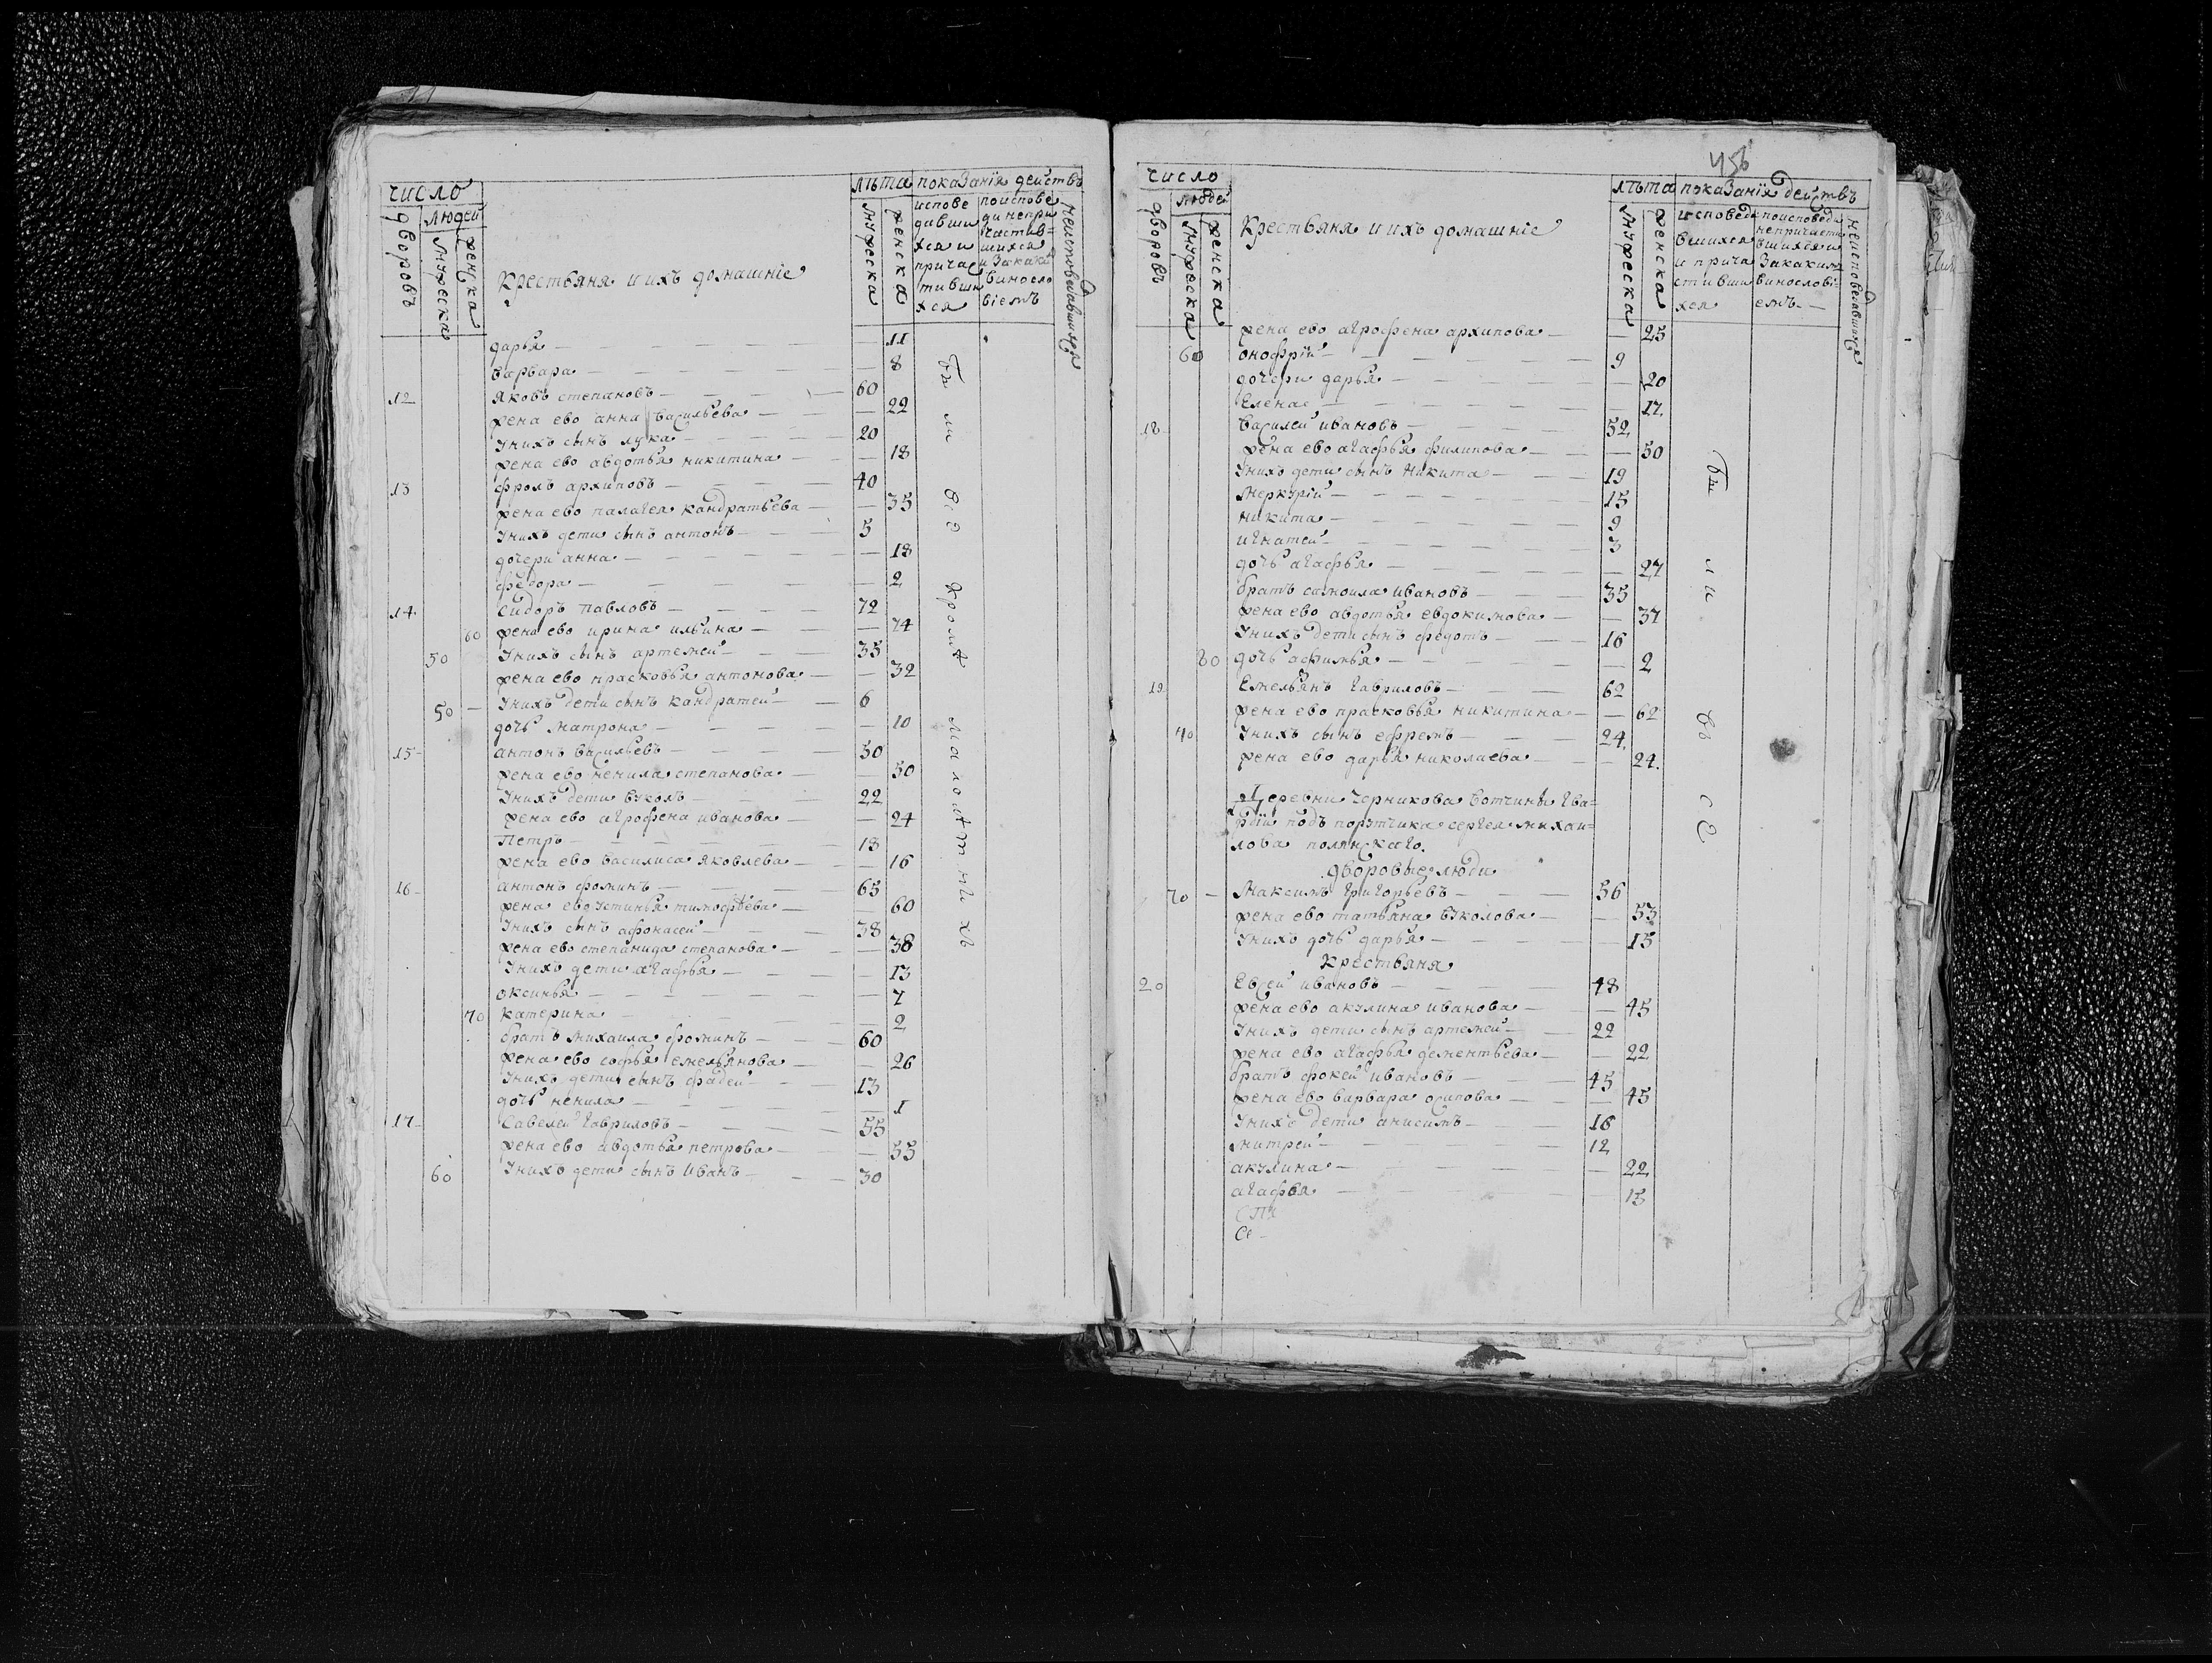 число
лѣта показанія действъ
дворовъ
людей
мужеска
женска
Крестьяня и ихъ домашніе
мужеска
женска
исповедавшихся и причастившихся
поисповеди непричастившихся и закакимъ винословіемъ
неисповедавшихся
дарья — 11
варвара — 8
12 яковъ степановъ — 60
жена ево анна васильева — 22
унихъ сынъ лука — 20
жена ево авдотья никитина — 18
13 фролъ архиповъ — 40
жена ево палагея кандратьева — 35
унихъ дети сынъ антонъ — 5
дочери анна — 18
федора — 2
14 сидоръ павловъ — 72
60 жена ево ирина ильина — 74
50 унихъ сынъ артемей — 35
жена ево прасковья антонова — 32
50 — унихъ дети сынъ кандратей — 6
дочь матрона — 10
15 антонъ васильевъ — 50
жена ево ненила степанова — 50
унихъ дети вуколъ — 22
жена ево агрофена иванова — 24
петръ — 18
жена ево василиса яковлева — 16
16 антонъ фоминъ — 65
жена ево устинья тимофѣева — 60
унихъ сынъ афонасей — 38
жена ево степанида степанова — 38
унихъ дети агафья — 13
оксинья — 7
70 катерина — 2
братъ михаила фоминъ — 60
жена ево софья емельянова — 26
унихъ дети сынъ фадей — 13
дочь ненила — 1
17 савелей гавриловъ — 55
жена ево авдотья петрова — 55
60 унихъ дети сынъ иванъ — 30
были все кромѣ малолѣтныхъ
456
число
лѣта показанія действъ
дворовъ
людей
мужеска
женска
Крестьяня и ихъ домашніе
мужеска
женска
исповедавшихся и причастившихся
поисповеди непричастившихся и закакимъ винословіемъ
неисповедавшихся
жена ево агрофена архипова — 25
60 онофрій — 9
дочери дарья — 20
елена — 17
18 василей ивановъ — 52
жена ево агафья филипова — 50
унихъ дети сынъ никита — 19
меркурій — 15
никита — 9
игнатей — 3
дочь агафья — 27
братъ самоила ивановъ — 35
жена ево авдотья евдокимова — 37
унихъ дети сынъ федотъ — 16
80 дочь афимья — 2
19 емельянъ гавриловъ — 62
жена ево прасковья никитина — 62
70 унихъ сынъ ефремъ — 24
жена ево дарья николаева — 24
Деревни черникова вотчины гва=
рдіи подъ порутчика сергея михаи=
лова полянскаго.
дворовые люди
70 — максимъ григорьевъ — 56
жена ево татьяна вуколова — 53
унихъ дочь дарья — 15
Крестьяня
20 евсей ивановъ — 48
жена ево акулина иванова — 45
унихъ дети сынъ артемей — 22
жена ево агафья дементьева — 22
братъ фокей ивановъ — 45
жена ево варвара осипова — 45
унихъ дети анисимъ — 16
митрей — 12
акулина — 22
агафья — 13
были все